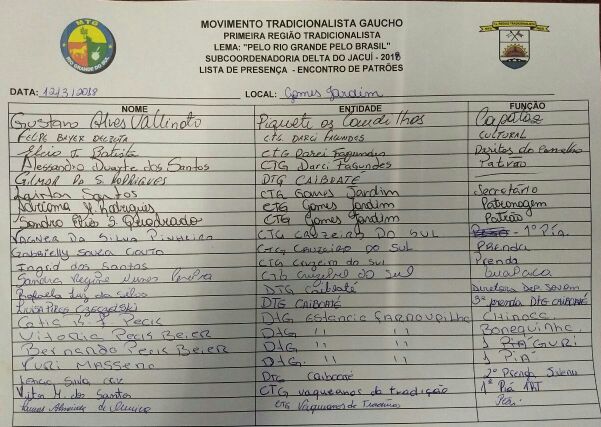 MTG
RIO GRANDE DO SUL
MOVIMENTO TRADICIONALISTA GAUCHO
PRIMEIRA REGIÃO TRADICIONALISTA
LEMA: "PELO RIO GRANDE PELO BRASIL"
SUBCOORDENADORIA DELTA DO JACUÍ - 2018
LISTA DE PRESENÇA - ENCONTRO DE PATRÕES
DATA: 12/3/2018 LOCAL: Gomes Jardim
NOME ENTIDADE FUNÇÃO
Gustavo Alves Vallinoto Piquete os Caudilhos Capataz
FELIPE CTG. DARCI FAGUNDES CULTURAL
J. Batista CTG Darci Fagundes Diretos do Conselho
Alessandro Duarte dos Santos CTG Darci Fagundes Patrão
GILMAR DO S. RODRIGUES DTG CAIBOATÉ
Santos CTG Gomes Jardim Secretário
Adriana Rodrigues CTG Gomes Jardim Patronagem
Sandro S. Quadrado CTG Gomes Jardim Patrão
VAGNER DA SILVA PINHEIRO CTG CRUZEIRO DO SUL 1º Piá.
Gabrielly Souza Couto CTG CRUZEIRO DO SUL PRENDA
Ingrid dos Santos CTG Cruzeiro do Sul Prenda
Sandra Regina Nunes CTG do Sul
Rafaela Luz da Silva DTG Caiboaté Diretora Dep. Jovem
DTG CAIBOATÉ 3ª prenda DTG CAIBOATÉ
Catia Pecis DTG ESTANCIA FARROUPILHA CHINOCA
Vitoria Pecis Beier DTG " " Bonequinha
Bernardo Pecis Beier DTG " " PIÁ GURI
YURI MASSENO DTG. " " PIÁ
Silva DTG CAIBOATÉ 2ª Prenda Juvenil
Vitor M. dos Santos CTG vaqueanos da tradição 1º Piá 1RT
Almeida de Oliveira CTG Vaqueanos da Tradição